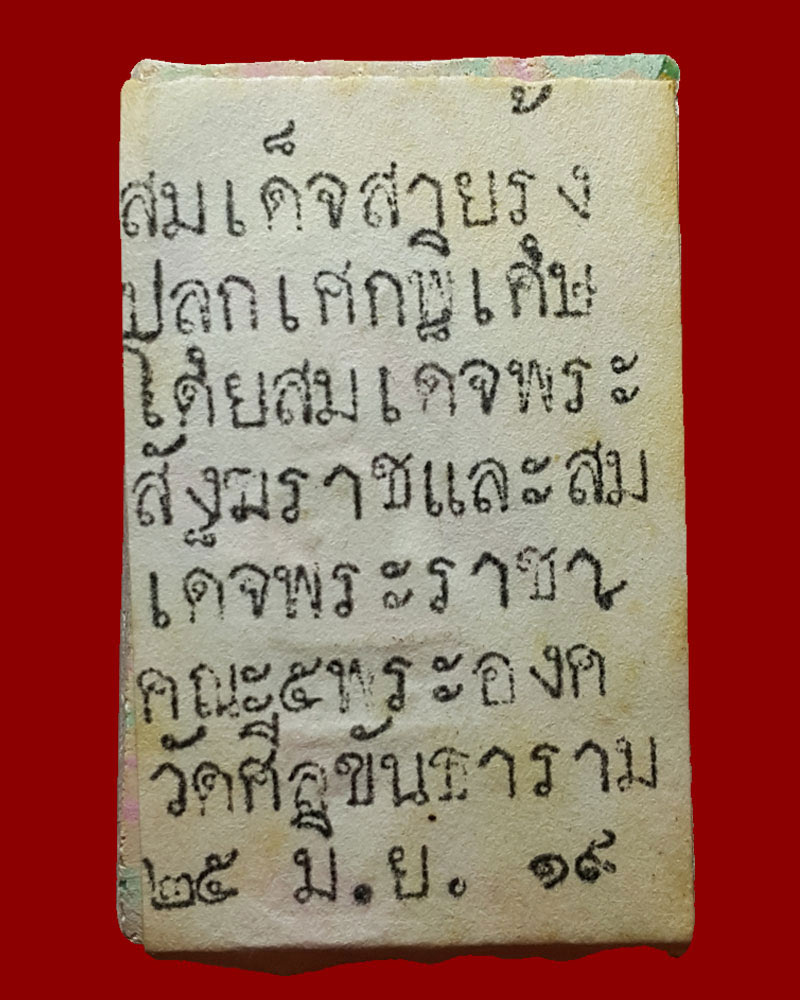 สมเด็จสายรุ้ง
ปลุกเศกพิเศษ
โดยสมเดจพระ
สังฆราชและสม
เดจพระราชา
คณะ๕พระองค
วัดศีลขันธาราม
๒๕ มิ.ย. ๑๙